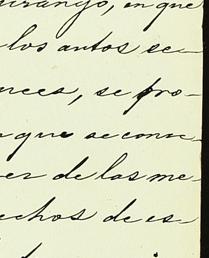 urango, en que
los autos se-
nces, se pro-
que se conse-
er de las me-
echos de es-